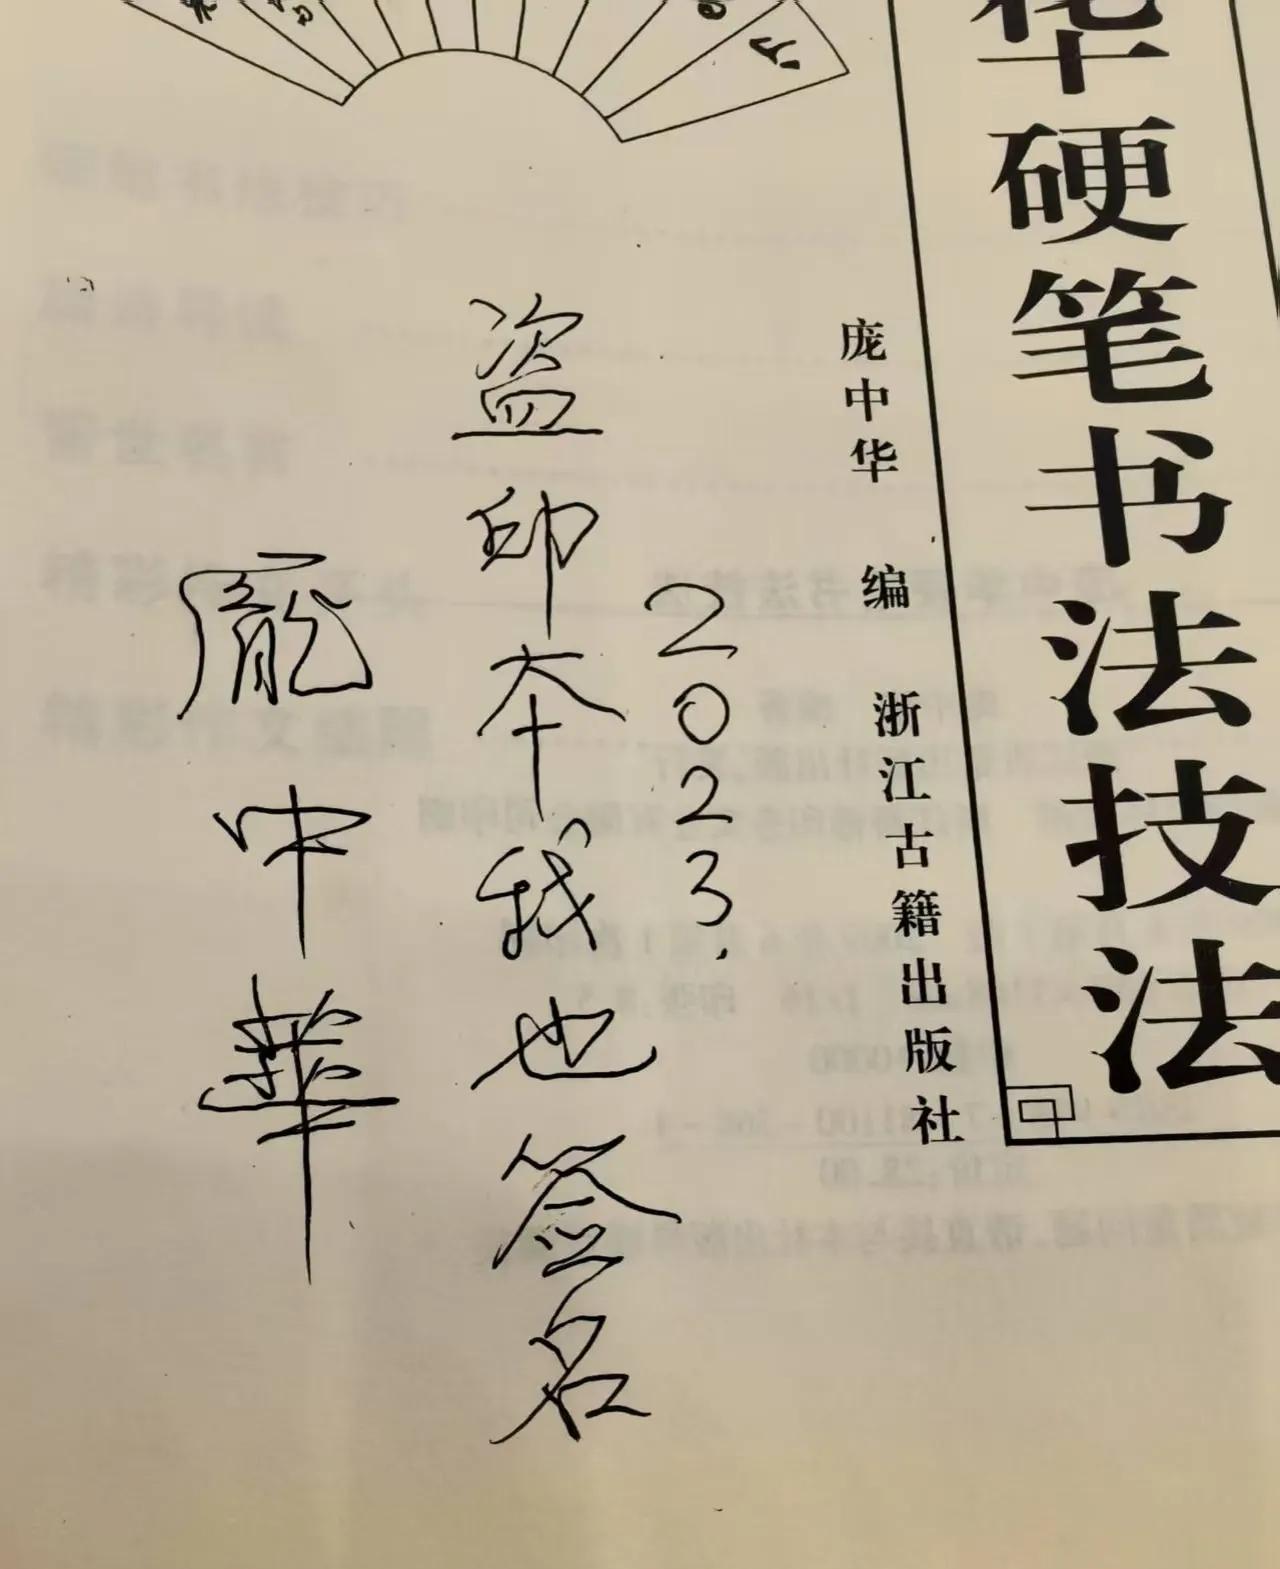 华硬笔书法技法
庞中华 编 浙江古籍出版社
2023.
盗印本我也签名
龐中華